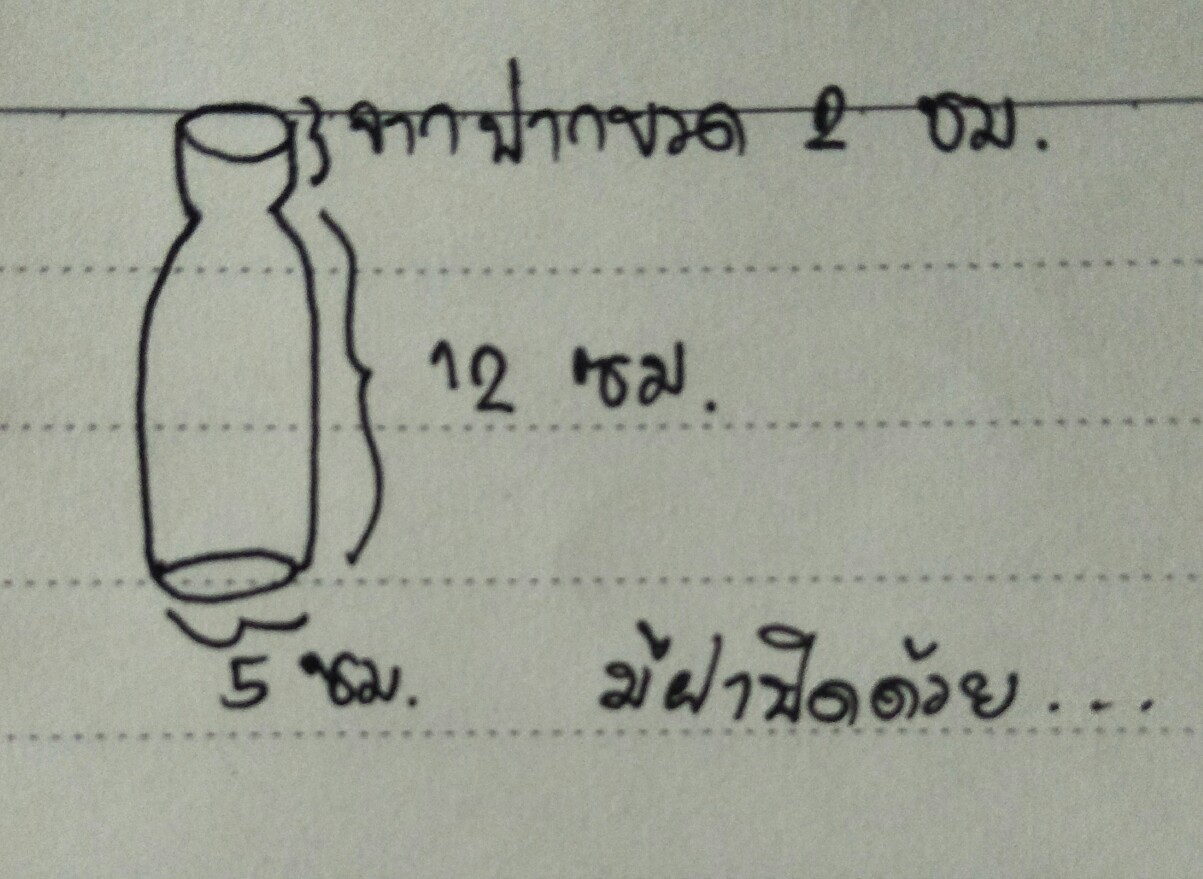 จากปากขวด 2 ซม.
12 ซม.
5 ซม.
มีฝาปิดด้วย...